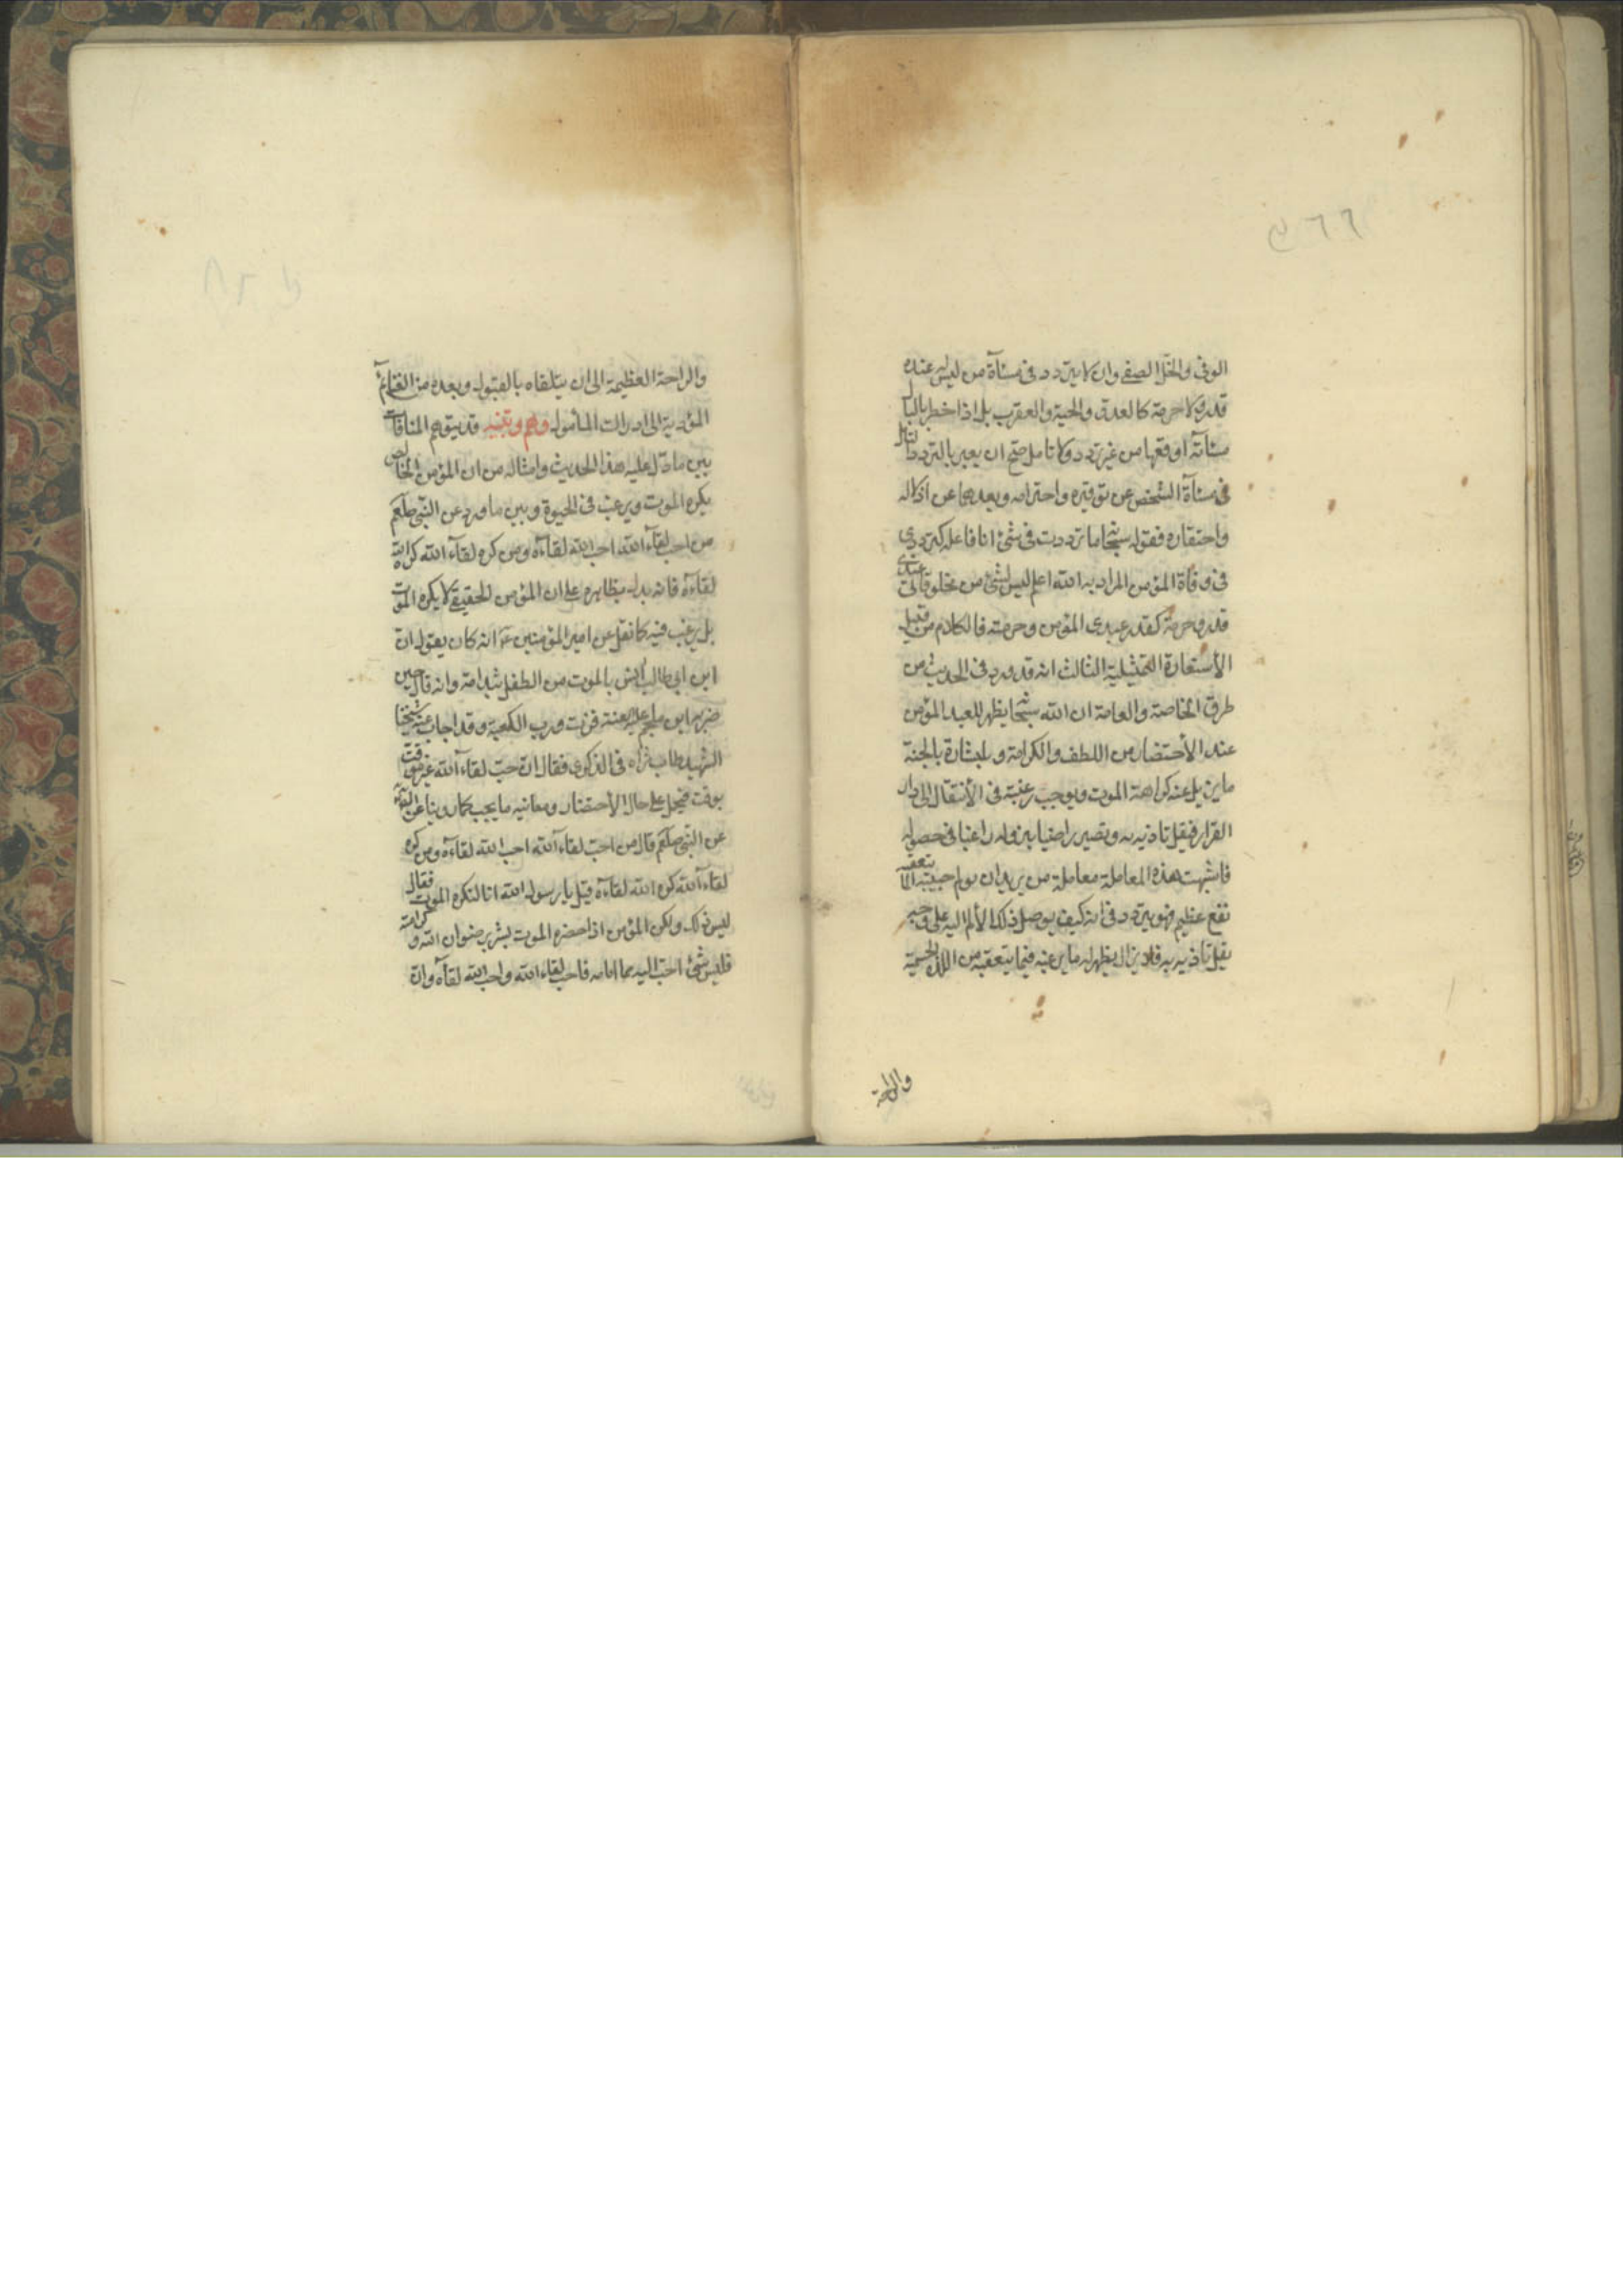 الوفی والخلّ الصفی وان لا یتردد فی مسآءة من لیس له عنده
قدر ولا حرمة کالعدو والحیة والعقرب بل اذا خطر بالبال
مسائته اوقعها من غیر تردد ولا تامل صح ان یعبر بالتردد والتامل
فی مسآءة الشخص عن توقیره واحترامه وبعدمهما عن اذلاله
واحتقاره فقوله سبحانه ما ترددت فی شئ انا فاعله کترددی
فی وفاة المؤمن المراد به والله اعلم لیس لشئ من مخلوقاتی عندی
قدر وحرمة کقدر عبدی المؤمن وحرمته فالکلام من قبیل
الأستعارة التمثیلیة الثالث انه قد ورد فی الحدیث من
طرق الخاصة والعامة ان الله سبحانه یظهر للعبد المؤمن
عند الأحتضار من اللطف والکرامة والبشارة بالجنة
ما یزیل عنه کراهة الموت ویوجب رغبته فی الأنتقال الی دار
القرار فیقل تاذیه به ویصیر راضیا بنزوله راغبا فی حصوله
فاشبهت هذه المعاملة معاملة من یرید ان یولم حبیبه الما یتعقبه
نفع عظیم فهو یتردد فی انه کیف یوصل ذلک الألم الیه علی وجه
یقل تاذیه به فلا یزال یظهر له ما یرغبه فیما یتعقبه من اللذة الجسمیة
والراحة
والراحة العظیمة الی ان یتلقاه بالقبول ویعده من الغنآئم
المؤدیة الی ادراک المأمول وهم وتنبیه قد یتوهم المنافات
بین ما دل علیه هذا الحدیث وامثاله من ان المؤمن الخالص
یکره الموت ویرغب فی الحیوة وبین ما ورد عن النبی صلعم
من احب لقآء الله احب الله لقاءه ومن کره لقآء الله کره الله
لقاءه فانه یدل بظاهره علی ان المؤمن الحقیقی لا یکره الموت
بل یرغب فیه کما نقل عن امیر المؤمنین ع انه کان یقول ان
ابن ابی طالب انس بالموت من الطفل بثدی امه وانه قال حین
ضربه ابن ملجم علیه اللعنة فزت ورب الکعبة وقد اجاب عنه شیخنا
الشهید طاب ثراه فی الذکری فقال ان حب لقاء الله غیر موقت
بوقت فیحمل علی حال الأحتضار ومعاینة ما یحب کما روینا عن
عن النبی صلعم قال من احب لقاء الله احب الله لقاءه ومن کره
لقاء الله کره الله لقاءه قیل یا رسول الله انا لنکره الموت فقال
لیس ذلک ولکن المؤمن اذا حضره الموت بشر برضوان الله وکرامته
فلیس شئ احب الیه مما امامه فاحب لقاء الله واحب الله لقآءه وان